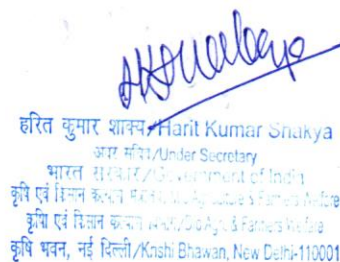 हरित कुमार शाक्य/Harit Kumar Shakya
अवर सचिव/Under Secretary
भारत सरकार/Government of India
कृषि एवं किसान कल्याण & Farmers Welfare
कृषि एवं किसान कल्याण & Farmers Welfare
कृषि भवन, नई दिल्ली/Krishi Bhawan, New Delhi-110001